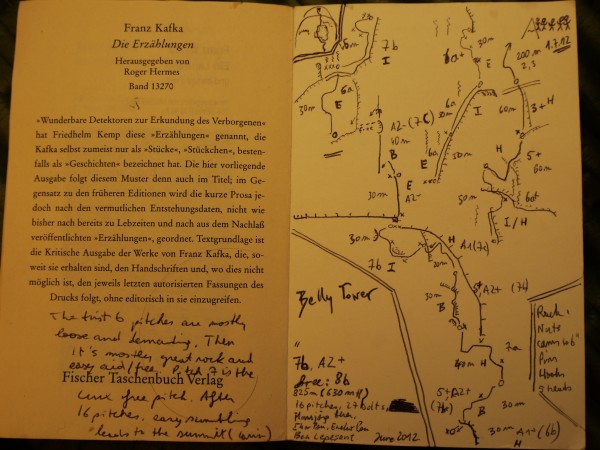 Franz Kafka
Die Erzählungen
Herausgegeben von
Roger Hermes
Band 13270
»Wunderbare Detektoren zur Erkundung des Verborgenen«
hat Friedhelm Kemp diese »Erzählungen« genannt, die
Kafka selbst zumeist nur als »Stücke«, »Stückchen«, besten-
falls als »Geschichten« bezeichnet hat. Die hier vorliegende
Ausgabe folgt diesem Muster denn auch im Titel; im Ge-
gensatz zu den früheren Editionen wird die kurze Prosa je-
doch nach den vermutlichen Entstehungsdaten, nicht wie
bisher nach bereits zu Lebzeiten und nach aus dem Nachlaß
veröffentlichten »Erzählungen«, geordnet. Textgrundlage ist
die Kritische Ausgabe der Werke von Franz Kafka, die, so-
weit sie erhalten sind, den Handschriften und, wo dies nicht
möglich ist, den jeweils letzten autorisierten Fassungen des
Drucks folgt, ohne editorisch in sie einzugreifen.
The first 6 pitches are mostly
loose and demanding. Then
it's mostly great rock and
easy aid/free. Pitch 7 is the
Fischer Taschenbuch Verlag
crux free pitch. After
16 pitches. easy scrambling
leads to the summit
1.7.12
6a
7b
I
30m
6a+
E
30m
200m
2,3
30m
E
6a
A2-(7c)
40m
B
6a
E
50m
I
60m
3+
H
H
5+
60m
30m
A2-
50m
30m
6a+
I/H
30m
7b
I
H
A1(7a)
30m
B
A2+ (7b)
Belly Tower
7b, A2+
free: 8b
825m (630m)
16 pitches, 27 bolts,
Hansjörg Auer,
Ben Lepesant
June 2012
40m H
7a
5+A2+
(7b)
B
30m
30m
A1+(6b)
H
Rack:
Nuts
Hooks